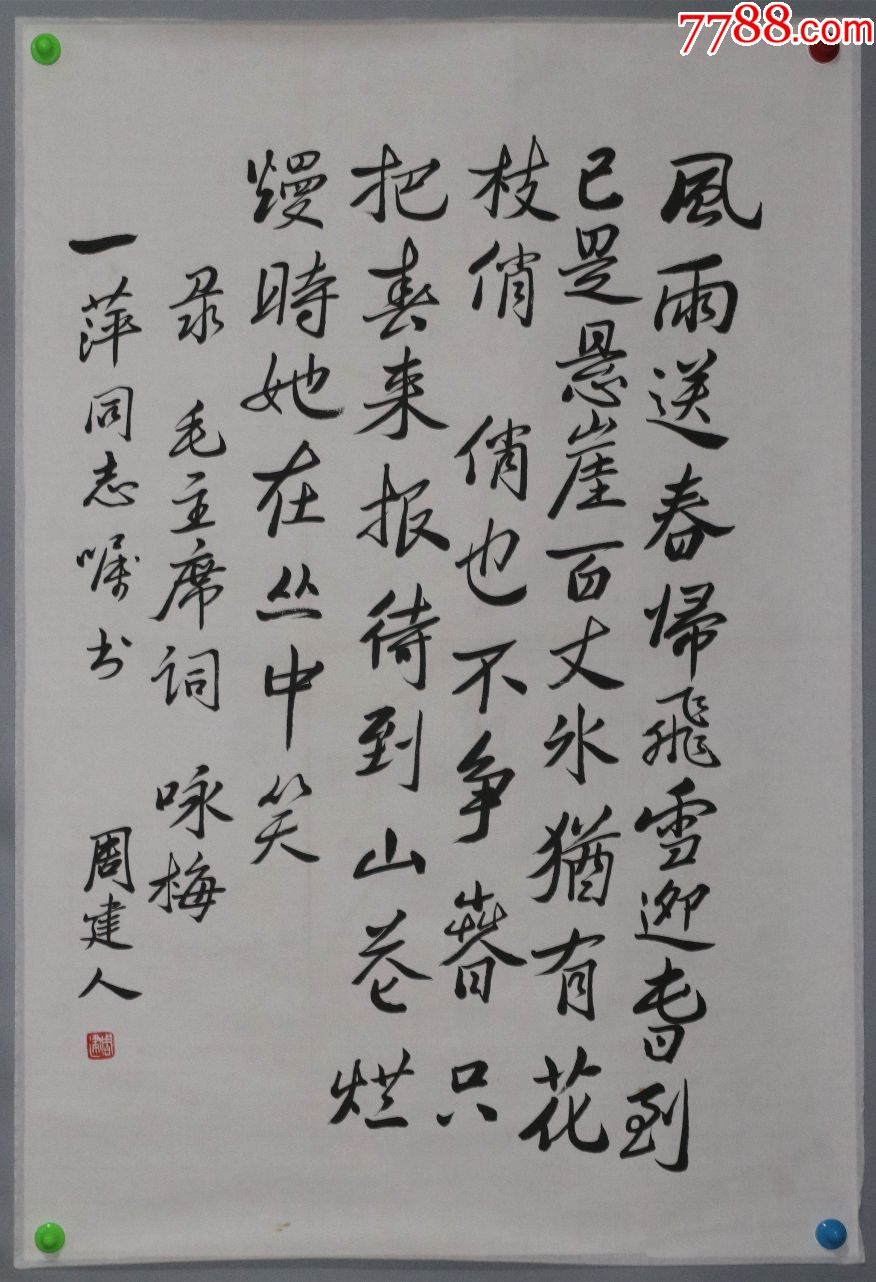 7788.com
風雨送春帰飛雪迎春到
已是悬崖百丈氷猶有花
枝俏 俏也不争春只
把春来报待到山花烂
熳時她在丛中笑
录 毛主席词 咏梅
一萍同志嘱书 周建人